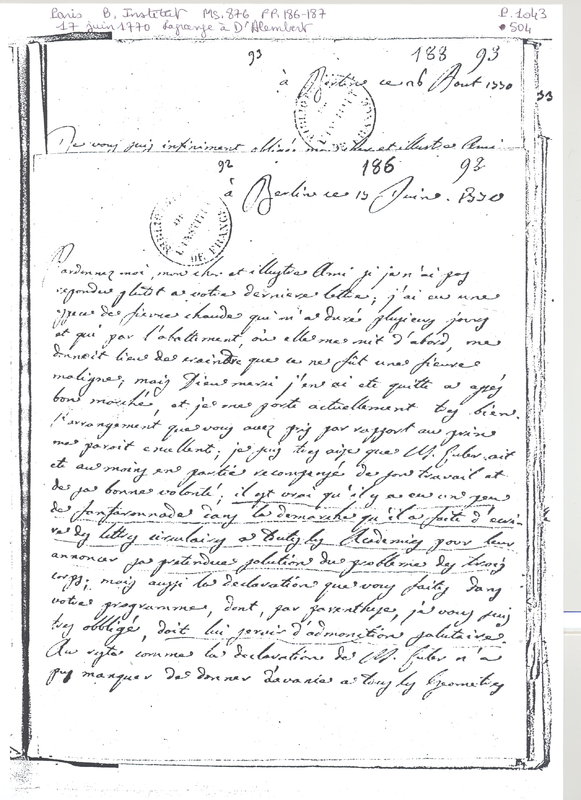 Paris B. Institut MS. 876 PP. 186-187
P. 1043
17 juin 1770 Lagrange à D'Alembert
• 504
93
188 93
à Berlin ce 26 Aout 1770
33
Je vous suis infiniment obligé mon cher et illustre Ami
92
186 93
à Berlin ce 17 Juin 1770
BIBLIOTHÈQUE DE L'INSTITUT DE FRANCE
Pardonnez moi, mon cher et illustre Ami si je n'ai pas
repondu plutôt a votre derniere lettre; j'ai eu une
espece de fievre chaude qui m'a duré plusieurs jours
et qui par l'abattement où elle me mit d'abord, me
donnoit lieu de craindre que ce ne fût une fievre
maligne; mais Dieu merci j'en ai eté quitte a assés
bon marché, et je me porte actuellement tres bien.
L'arrangement que vous avez pris par rapport au prix
me paroit excellent; je suis tres aise que M. Euler ait
eté au moins en partie recompensé de son travail et
de sa bonne volonté; il est vrai qu'il y a eu un peu
de fanfaronnade dans la demarche qu'il a faite d'ecri-
re des lettres circulaires a toutes les Academies pour leur
annoncer sa pretendue solution du probleme des trois
corps; mais aussi la declaration que vous faites dans
votre programme, dont, par parenthese, je vous suis
tres obbligé, doit lui servir d'admonition salutaire.
Au reste comme la declaration de M. Euler n'a
pu manquer de donner d'avance a tous les Geometres